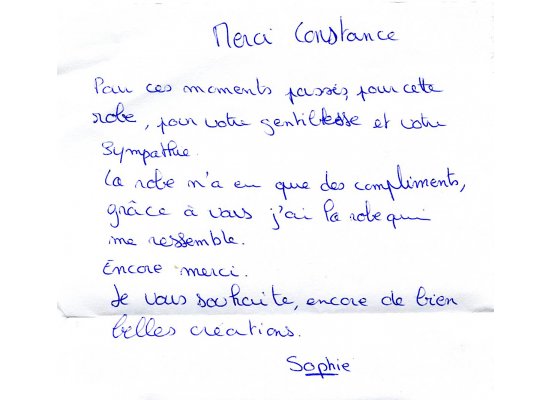 Merci Constance
Pour ces moments passés, pour cette
robe, pour votre gentillesse et votre
sympathie.
La robe n'a eu que des compliments,
grâce à vous j'ai la robe qui
me ressemble.
Encore merci.
Je vous souhaite, encore de bien
belles créations.
Sophie